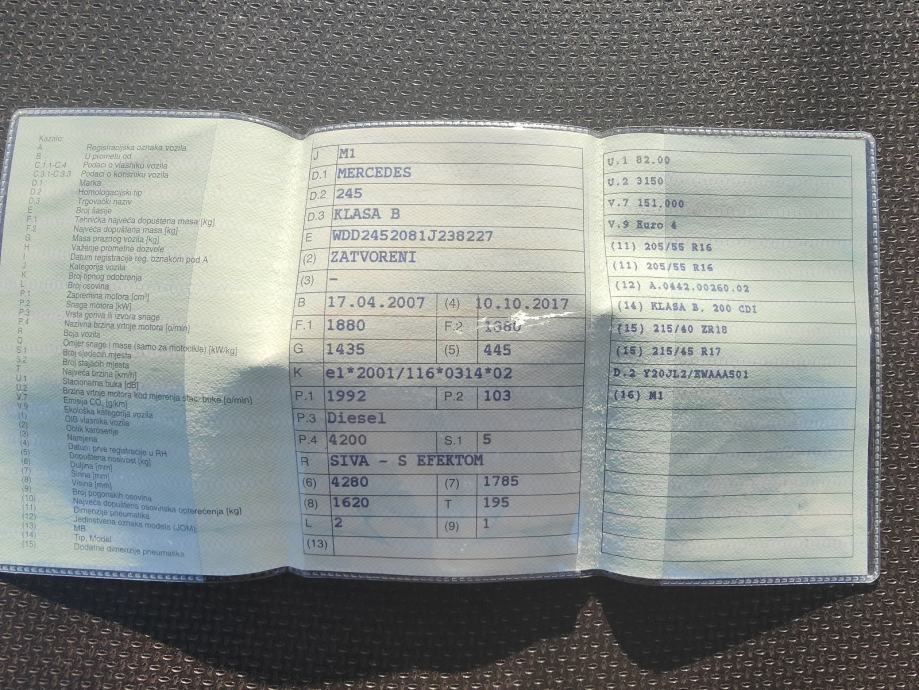 Kazalo:
A Registracijska oznaka vozila
B U prometu od
C.1.1-C.4 Podaci o vlasniku vozila
C.3.1-C.3.3 Podaci o korisniku vozila
D.1 Marka
D.2 Homologacijski tip
D.3 Trgovački naziv
E Broj šasije
F.1 Tehnička najveća dopuštena masa [kg]
F.2 Najveća dopuštena masa [kg]
G Masa praznog vozila [kg]
H Važenje prometne dozvole
I Datum registracije reg. oznakom pod A
J Kategorija vozila
K Broj tipnog odobrenja
L Broj osovina
P.1 Zapremina motora [cm³]
P.2 Snaga motora [kW]
P.3 Vrsta goriva ili izvora snage
P.4 Nazivna brzina vrtnje motora [o/min]
R Boja vozila
Q Omjer snage i mase (samo za motocikle) [kW/kg]
S.1 Broj sjedećih mjesta
S.2 Broj stajaćih mjesta
T Najveća brzina [km/h]
U.1 Stacionarna buka [dB]
U.2 Brzina vrtnje motora kod mjerenja stac. buke [o/min]
V.7 Emisija CO₂ [g/km]
V.9 Ekološka kategorija vozila
(1) OIB vlasnika vozila
(2) Oblik karoserije
(3) Namjena
(4) Datum prve registracije u RH
(5) Dopuštena nosivost [kg]
(6) Duljina [mm]
(7) Širina [mm]
(8) Visina [mm]
(9) Broj pogonskih osovina
(10) Najveća dopuštena osovinska opterećenja [kg]
(11) Dimenzije pneumatika
(12) Jedinstvena oznaka modela (JOM)
(13) MB
(14) Tip, Model
(15) Dodatne dimenzije pneumatika
J M1
D.1 MERCEDES
D.2 245
D.3 KLASA B
E WDD2452081J238227
(2) ZATVORENI
(3) –
B 17.04.2007 (4) 10.10.2017
F.1 1880 F.2 1880
G 1435 (5) 445
K e1*2001/116*0314*02
P.1 1992 P.2 103
P.3 Diesel
P.4 4200 S.1 5
R SIVA – S EFEKTOM
(6) 4280 (7) 1785
(8) 1620 T 195
L 2 (9) 1
(13)
U.1 82.00
U.2 3150
V.7 151.000
V.9 Euro 4
(11) 205/55 R16
(11) 205/55 R16
(12) A.0442.00260.02
(14) KLASA B, 200 CDI
(15) 215/40 ZR18
(15) 215/45 R17
D.2 Y20JL2/EWAAA501
(16) M1